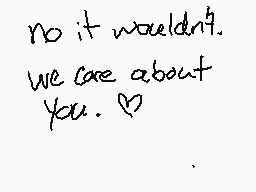 no it wouldn't.
we care about
you. ♡